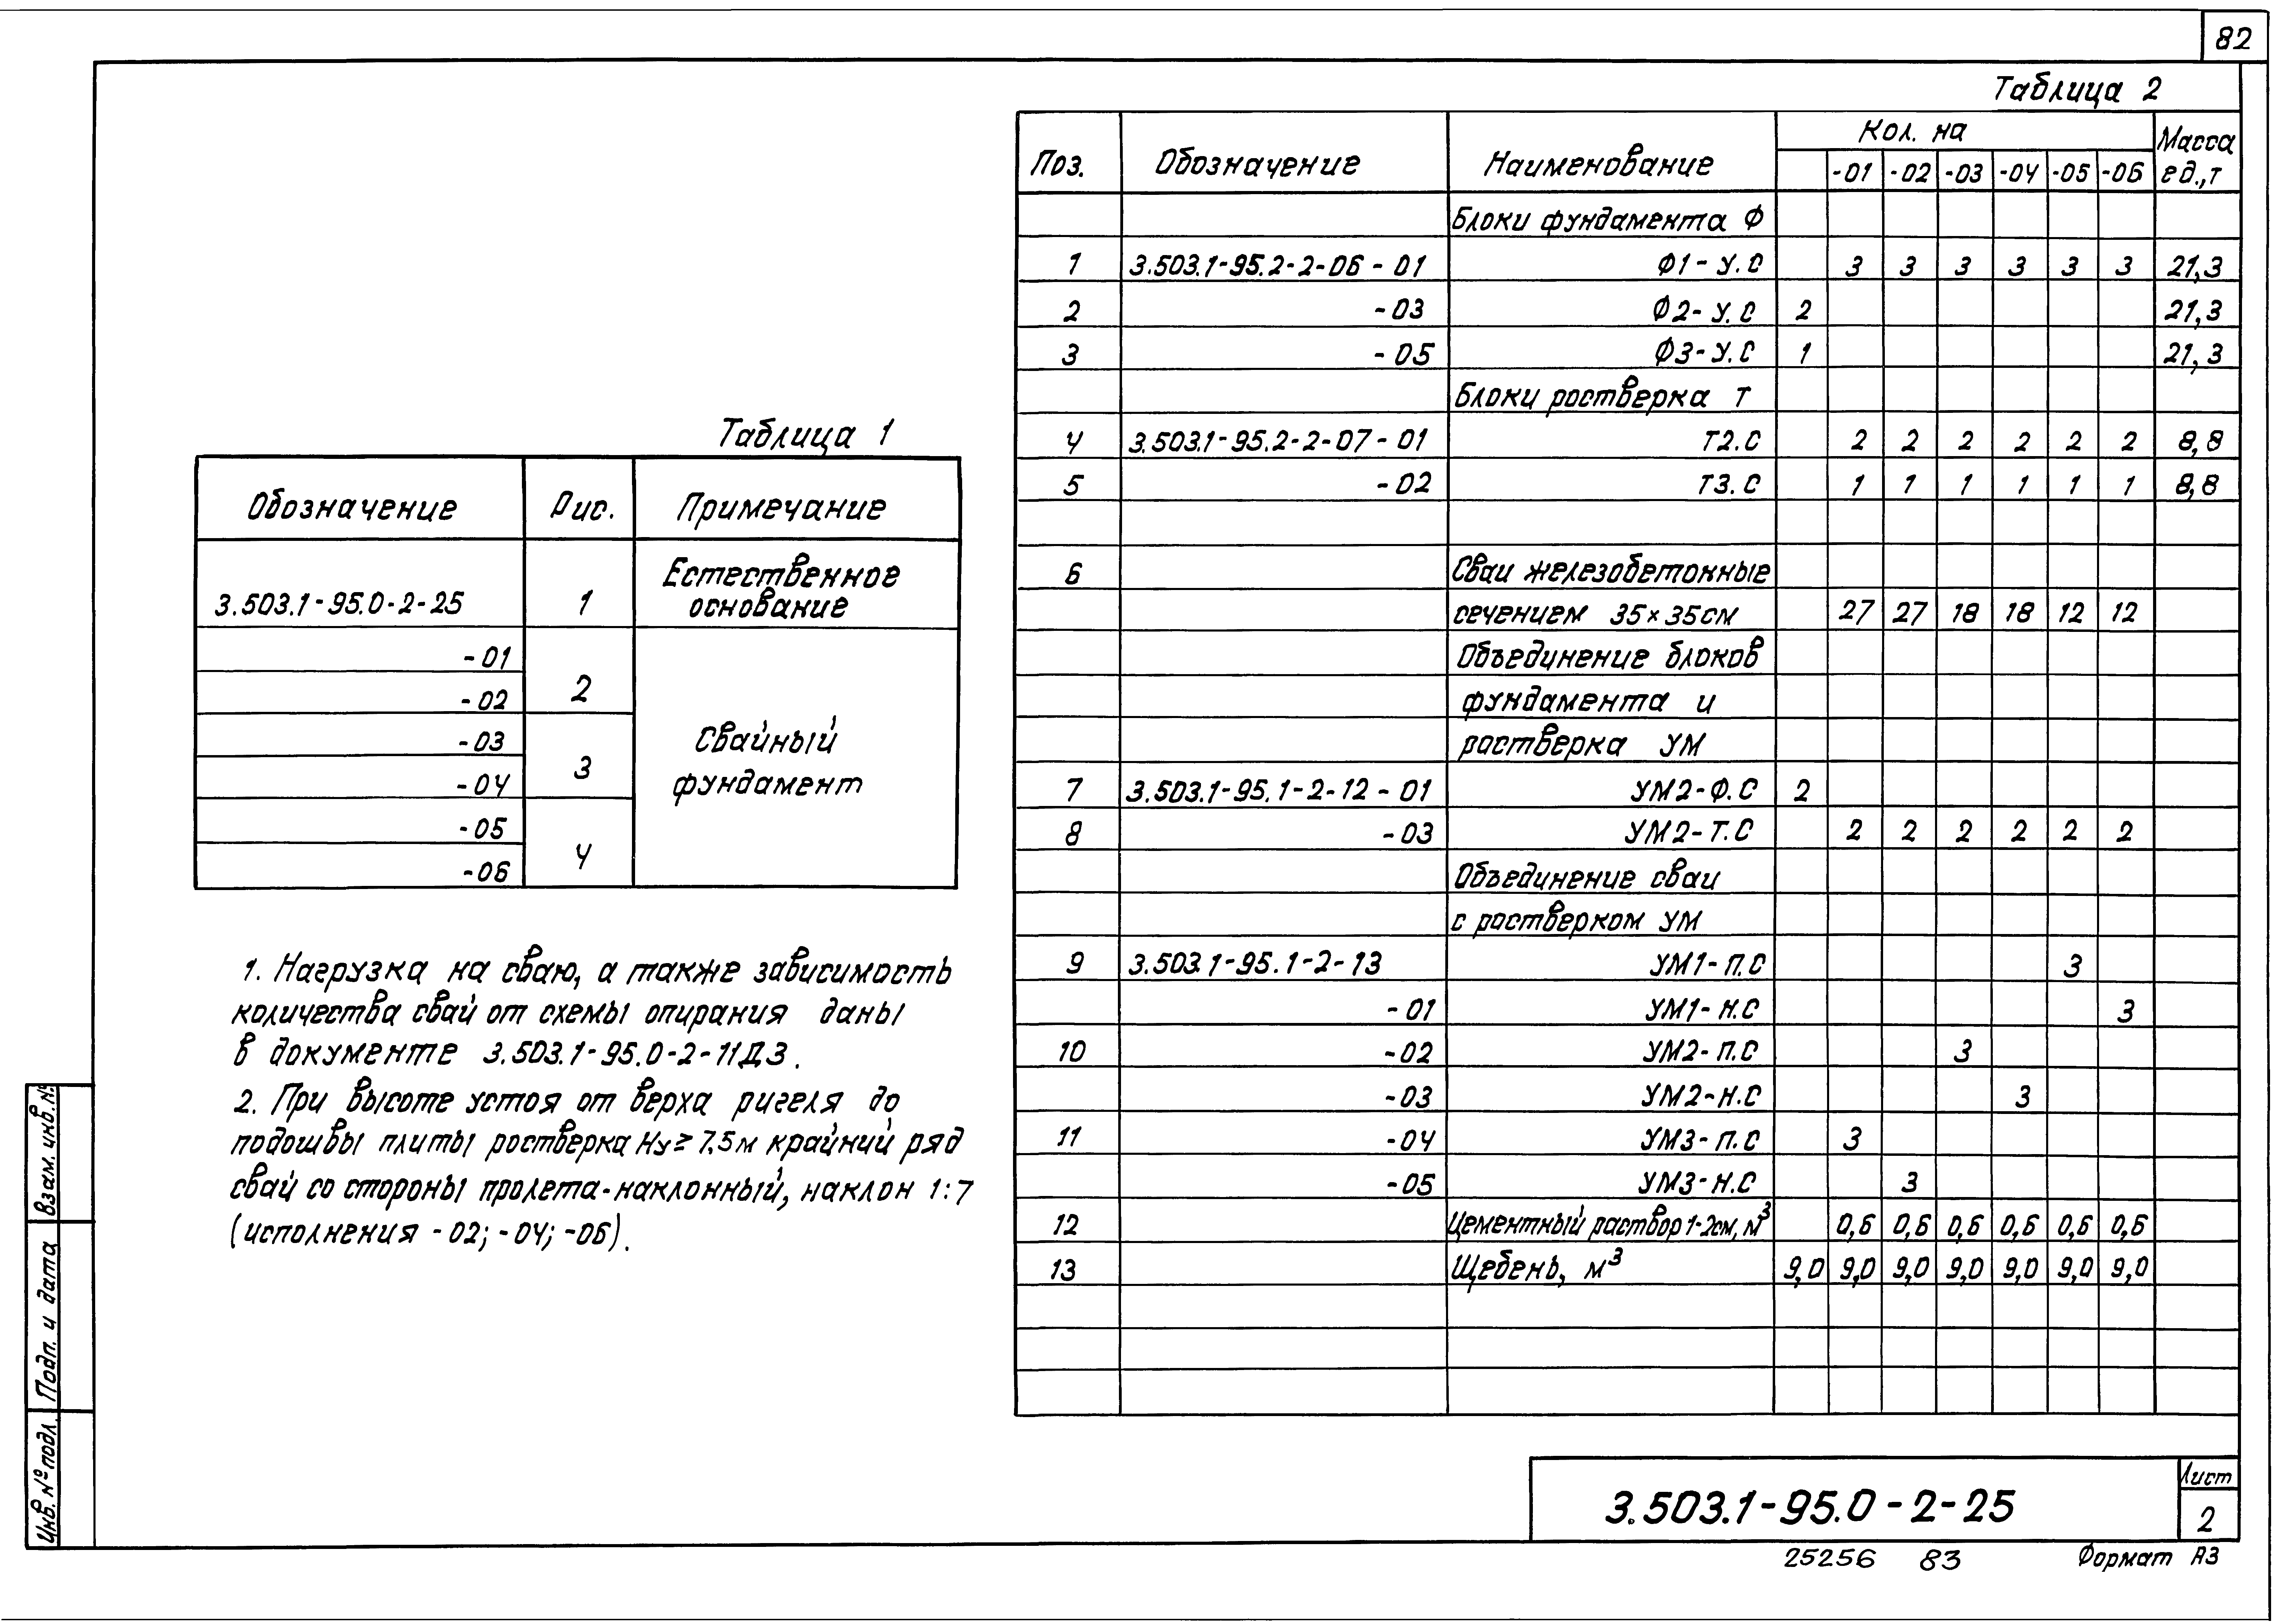 82
Таблица 2
Поз. Обозначение Наименование Кол. на Масса ед.,т
-01 -02 -03 -04 -05 -06
Блоки фундамента Ф
1 3.503.1-95.2-2-06-01 Ф1-У.С 3 3 3 3 3 3 21,3
2 -03 Ф2-У.С 2 21,3
3 -05 Ф3-У.С 1 21,3
Блоки ростверка Т
4 3.503.1-95.2-2-07-01 Т2.С 2 2 2 2 2 2 8,8
5 -02 Т3.С 1 1 1 1 1 1 8,8
6 Сваи железобетонные
сечением 35×35см 27 27 18 18 12 12
Объединение блоков
фундамента и
ростверка УМ
7 3.503.1-95.1-2-12-01 УМ2-Ф.С 2
8 -03 УМ2-Т.С 2 2 2 2 2 2
Объединение сваи
с ростверком УМ
9 3.503.1-95.1-2-13 УМ1-П.С 3
-01 УМ1-Н.С 3
10 -02 УМ2-П.С 3
-03 УМ2-Н.С 3
11 -04 УМ3-П.С 3
-05 УМ3-Н.С 3
12 Цементный раствор 1-2см, м³ 0,6 0,6 0,6 0,6 0,6 0,6
13 Щебень, м³ 9,0 9,0 9,0 9,0 9,0 9,0 9,0
Таблица 1
Обозначение Рис. Примечание
3.503.1-95.0-2-25 1 Естественное
основание
-01
-02 2
-03
-04 3
Свайный
фундамент
-05
-06 4
1. Нагрузка на сваю, а также зависимость
количества свай от схемы опирания даны
в документе 3.503.1-95.0-2-11Д3.
2. При высоте устоя от верха ригеля до
подошвы плиты ростверка Ну ≥ 7,5м крайний ряд
свай со стороны пролета-наклонный, наклон 1:7
(исполнения -02; -04; -06).
Взам. инв.№
Подп. и дата
Инв. № подл.
3.503.1-95.0-2-25
Лист
2
25256 83 Формат А3